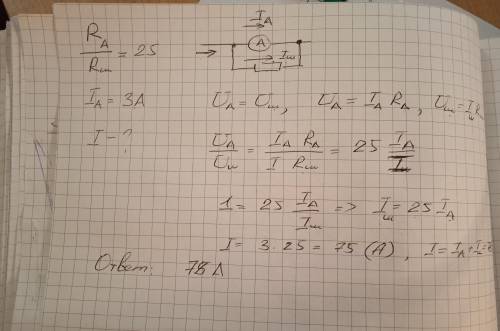 I_A
R_A / R_ш = 25
A
I_ш
I_A = 3A
U_A = U_ш, U_A = I_A R_A, U_ш = I_ш R
I - ?
U_A / U_ш = I_A R_A / I R_ш = 25 I_A / I_ш
1 = 25 I_A / I_ш => I_ш = 25 I_A
I = 3·25 = 75 (A), I = I_A + I_ш =
Ответ: 78 А